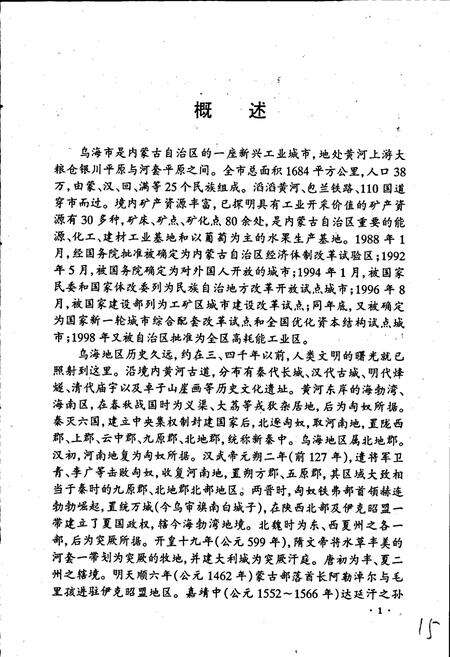 概 述
乌海市是内蒙古自治区的一座新兴工业城市,地处黄河上游大
粮仓银川平原与河套平原之间。全市总面积1684平方公里,人口38
万,由蒙、汉、回、满等25个民族组成。滔滔黄河、包兰铁路、110国道
穿市而过。境内矿产资源丰富,已探明具有工业开采价值的矿产资
源有30多种,矿床、矿点、矿化点80余处,是内蒙古自治区重要的能
源、化工、建材工业基地和以葡萄为主的水果生产基地。1988年1
月,经国务院批准被确定为内蒙古自治区经济体制改革试验区;1992
年5月,被国务院确定为对外国人开放的城市;1994年1月,被国家
民委和国家体改委列为民族自治地方改革开放试点城市;1996年8
月,被国家建设部列为工矿区城市建设改革试点;同年底,又被确定
为国家新一轮城市综合配套改革试点和全国优化资本结构试点城
市;1998年又被自治区批准为全区高耗能工业区。
乌海地区历史久远,约在三、四千年以前,人类文明的曙光就已
照射到这里。沿境内黄河古道,分布有秦代长城、汉代古城、明代烽
燧、清代庙宇以及卓子山崖画等历史文化遗址。黄河东岸的海勃湾、
海南区,在春秋战国时为义渠、大荔等戎狄杂居地,后为匈奴所据。
秦灭六国,建立中央集权制封建国家后,北逐匈奴,取河南地,置陇西
郡、上郡、云中郡、九原郡、北地郡,统称新秦中。乌海地区属北地郡。
汉初,河南地复为匈奴所据。汉武帝元朔二年(前127年),遣将军卫
青、李广等击败匈奴,收复河南地,置朔方郡、五原郡,其区域大致相
当于秦时的九原郡、北地郡北部地区。两晋时,匈奴铁弗部首领赫连
勃勃崛起,置统万城(今乌审旗南白城子),在陕西北部及伊克昭盟一
带建立了夏国政权,辖今海勃湾地境。北魏时为东、西夏州之各一
部,后为突厥所据。开皇十九年(公元599年),隋文帝将水草丰美的
河套一带划为突厥的牧地,并建大利城为突厥汗庭。唐初为丰、夏二
州之辖境。明天顺六年(公元1462年)蒙古部落首长阿勒淖尔与毛
里孩进驻伊克昭盟地区。嘉靖中(公元1552～1566年)达延汗之孙
·1·
15